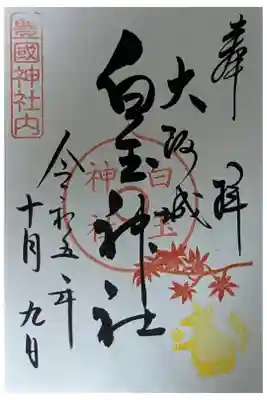 奉拝
大阪城
白玉神社
白玉神社
豊國神社内
令和五年
十月九日